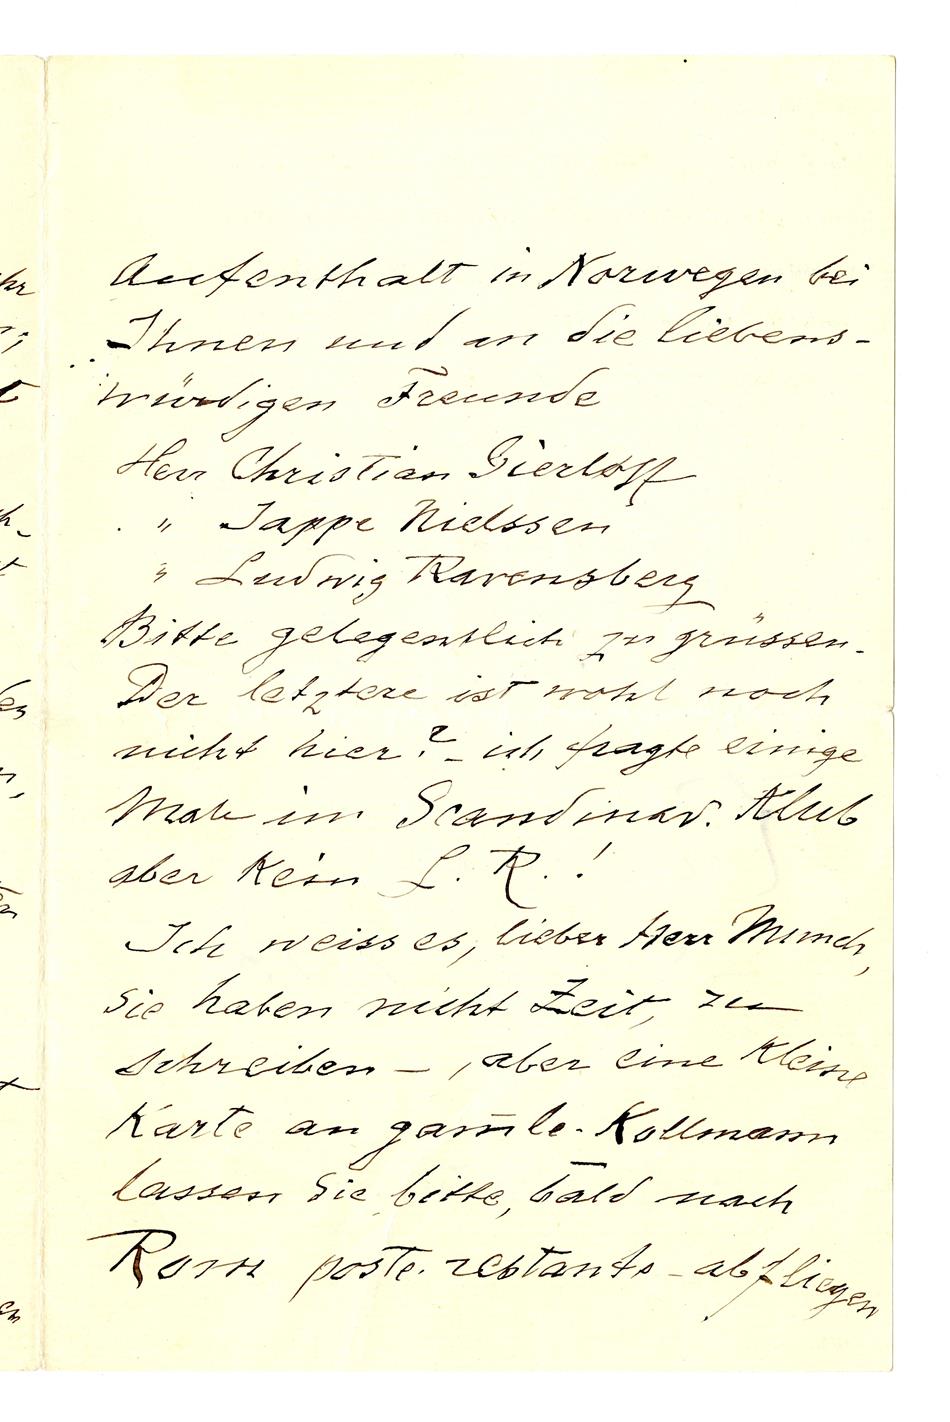 Aufenthalt in Norwegen bei
Ihnen und an die liebens-
würdigen Freunde
Herr Christian Gierlöff
" Jappe Nielssen
" Ludwig Ravensberg
Bitte gelegentlich zu grüssen.
Der letztere ist wohl noch
nicht hier? – ich fragte einige
Male im Scandinav. Klub
aber kein L. R. !
Ich weiss es, lieber Herr Munch,
Sie haben nicht Zeit, zu
schreiben –, aber eine kleine
Karte an gam̅le - Kollmann
lassen Sie, bitte, bald nach
Rom poste. restante – abfliegen